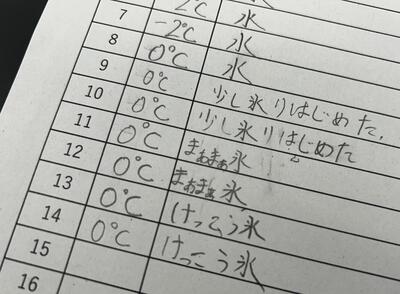 -2℃ 水
7 -2℃ 水
8 0℃ 水
9 0℃ 少し氷りはじめた.
10 0℃ 少し氷りはじめた
11 0℃ まぁまぁ氷
12 0℃ まぁまぁ氷
13 0℃ けっこう氷
14 0℃ けっこう氷
15
16